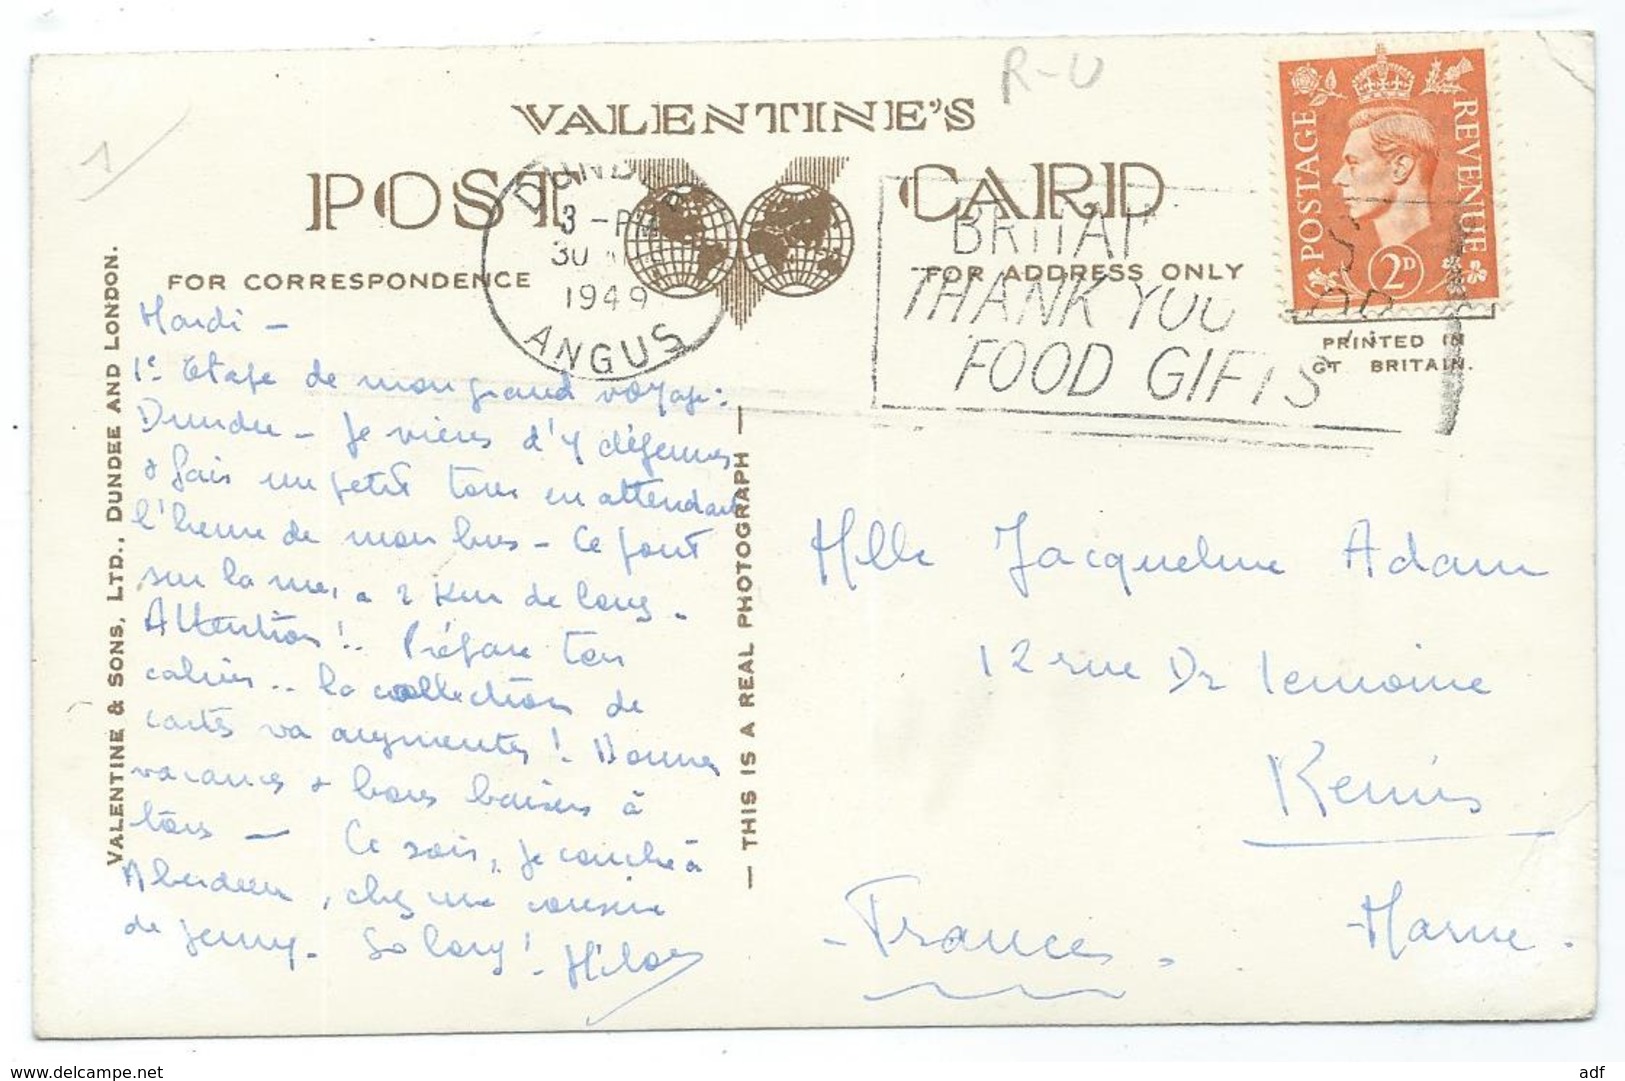 R-U
1
VALENTINE'S
POST CARD
FOR CORRESPONDENCE
FOR ADDRESS ONLY
DUNDEE
3 - PM
30
1949
ANGUS
BRITAI
THANK YOU
FOOD GIFTS
POSTAGE
REVENUE
2D
PRINTED IN
GT BRITAIN.
VALENTINE & SONS, LTD., DUNDEE AND LONDON.
— THIS IS A REAL PHOTOGRAPH —
Mardi -
1e étape de mon grand voyage :
Dundee - Je viens d'y déjeuner
& fais un petit tour en attendant
l'heure de mon bus - Ce pont
sur la mer, a 2 Km de long -
Attention !.. Prépare ton
cahier.. la collection de
cartes va augmenter ! Bonnes
vacances & bons baisers à
tous - Ce soir, je couche à
Aberdeen, chez une cousine
de Jenny. So long !
Mlle Jacqueline Adam
12 rue Dr Lemoine
Reims
Marne.
- France -
adf